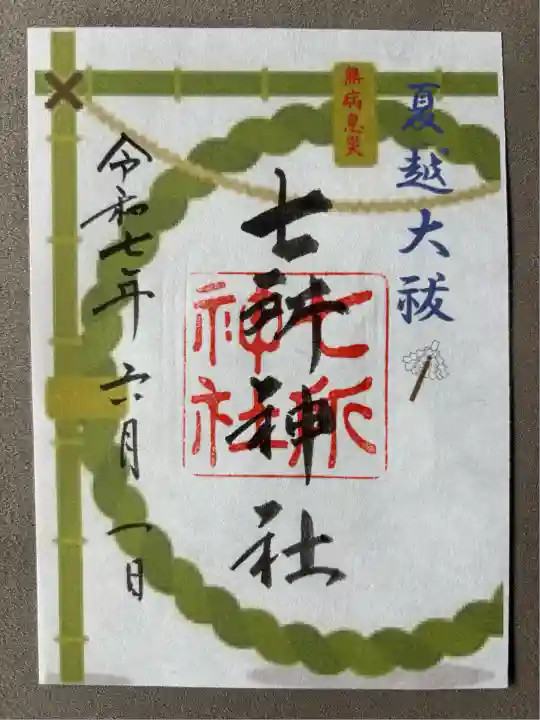 夏越大祓
無病息災
七所神社
七所
神社
令和七年 六月 一日